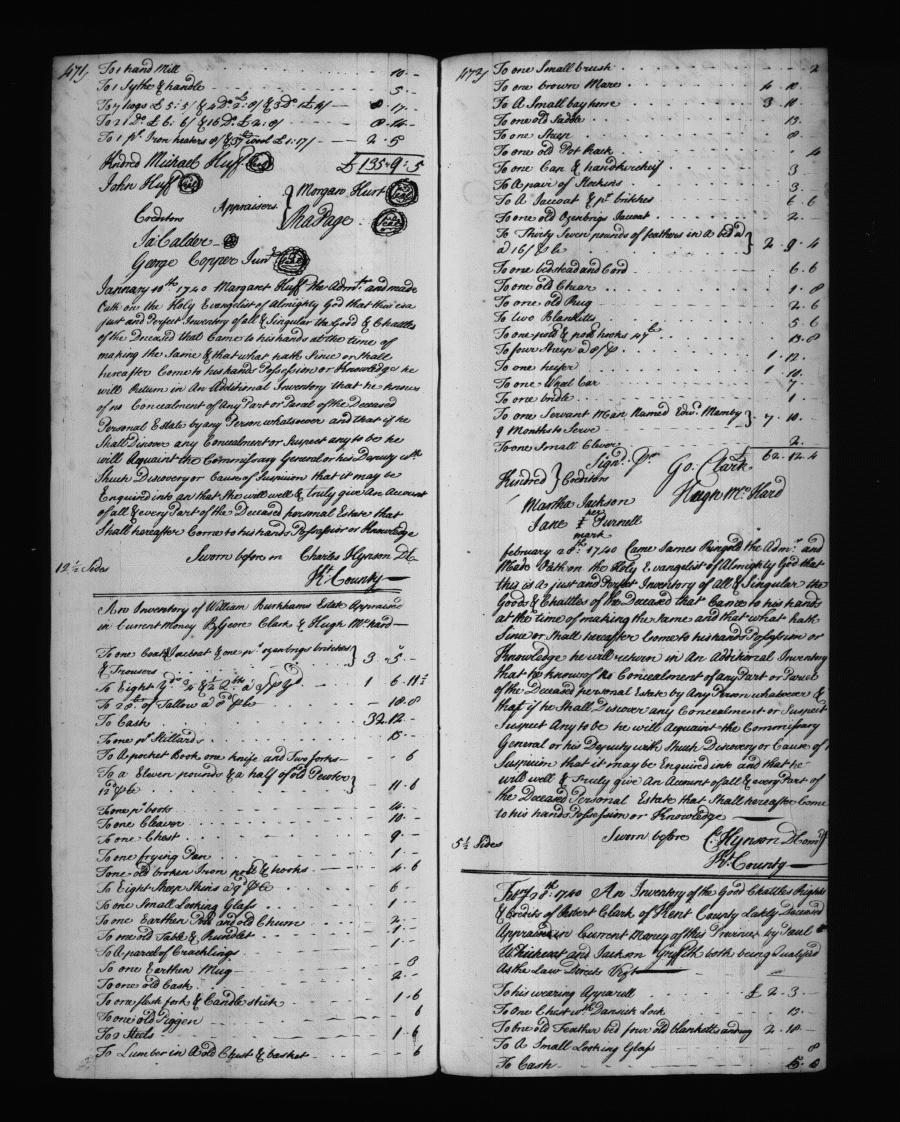 471
To 1 hand Mill - 10 -
To 1 Sythe & handle - 5 -
To 7 hogs £ 5:5/ & 4 Do 2:0/ & 3 Do - 17 -
To 21 do £ 6:6/ & 16 Do £ 2:0/ 8 - 14 -
To 1 pr Iron heaters 0/ & wool £ 1:17/ 2 - 5
Kindred Michael Huff Seal £ 135 - 9 - 5
John Huff Seal
Morgan Hurt Seal
Creditors Appraisers
Page Seal
Ja: Calder
George Copper Junr Seal
January 10th 1740 Margaret Huff the Admr and made
Oath on the Holy Evangelist of Almighty God that this is a
just and Perfect Inventory of all & Singular the Good & Chattles
of the Deceased that Came to his hands at the time of
making the Same & that what hath Since or Shall
hereafter Come to his hands Possession or Knowledge he
will Return in An Additional Inventory that he knows
of no Concealment of Any Part or Parcel of the Deceased
Personal Estate by any Person whatsoever and that if he
Shall Discover any Concealment or Suspect any to be he
will Aquaint the Commissary General or his Deputy with
Shuch Discovery or Cause of Suspicion that it may be
Enquired into an that she will well & truly give An Account
of all & every Part of the Deceased personal Estate that
Shall hereafter Come to his hands Possession or Knowledge
Sworn before me Charles Hynson DC
12 1/2 Sides
Kt County
An Inventory of William Burkhams Estate Appraised
in Current Money By George Clark & Hugh McHard
To one Coat & Jacoat & one pr ozenbrigs britches
& Trousers 3 - 5 -
To Eight 1 6 - 11 1/2
To of Tallow a 8d lb - 18 - 8
To Cash 32 - 12 -
To one pr Stillards - 15 -
To A pocket Book one knife and Two forks - 6
To a Eleven pounds & a half of old Pewter
12d lb 11 - 6
To one pr boots 4 -
To one Cleaver 10 -
To one Chest 9 -
To one frying Pan 1 -
To one old broken Iron pott & hooks 4 - 6
To Eight Sheep Skins a 9d 6 -
To one Small Looking Glass 1 -
To one Earthen Pott and old Churn 2 -
To one old Table & Rundlet 1 -
To A parcel of Cracklings 1 -
To one Earthen Mug - 8
To one old Cask 2 -
To one flesh fork & Candle stick 1 - 6
To one old Piggen 6
To 2 Steels 1 - 6
To Lumber in A old Chest & basket - 6
473
To one Small brush 2
To one brown Mare 4 10 -
To A Small bay horse 3 10
To one old Sadle 13 -
To one Sheep 8 -
To one old Pot Rack - 4
To one Cap & handkercheif 3 -
To A pair of Stockins 3 -
To A Jacoat & pr britches 6 - 6
To one old Ozenbrigs Jacoat 2 -
To Thirty Seven pounds of feathers in A bed a
a 16/ lb 2 - 9 - 4
To one bedstead and Cord 6 - 6
To one old Chear 1 - 8
To one old Rug 2 - 6
To two Blanketts 5 - 6
To one pott & pott hooks 13 - 8
To four Sheep a 8/ 1 - 12 -
To one heifer 1 10 -
To one Wool Car 7 -
To one bridle 1 -
To one Servant Man Named Edwd Mamby
9 Months to Serve 7 - 10 -
To one Small Clever 2 -
£ 62 - 12 - 4
Signd Pr Go. Clark
Kindred Creditors Hugh McHard
Martha Jackson
her
Jane Furnell
mark
february 28th 1740 Came James Ringold the Admr and
Made Oath on the Holy Evangelist of Almighty God that
this is A just and Perfect Inventory of All & Singular the
Goods & Chattles of the Deceased that Came to his hands
at the time of making the Same and that what hath
Since or Shall hereafter Come to his hands Possession or
Knowledge he will return in An Additional Inventory
that he knows of No Concealment of any Part or Parcel
of the Deceased personal Estate by Any Person whatsoever &
that if he Shall Discover any Concealment or Suspect
Suspect Any to be he will Aquaint the Commissary
General or his Deputy with Shuch Discovery or Cause of
Suspicion that it may be Enquired into and that he
will well & Truly give An Account of all & every Part of
the Deceased Personal Estate that Shall hereafter Come
to his hands Possession or Knowledge
Sworn before C. Hynson D Comy
5 1/2 Sides
Kt County
Febry 28th 1740 An Inventory of the Good Chattles Rights
& Credits of Robert Clark of Kent County Lately Deceased
Appraised in Current Money of this Province by Paul
Whichcoat and Jackson Griffith both being Qualifyed
As the Law Directs Vizt
To his wearing Apparell £ 2 - 3 -
To One Chest wth Dansick Lock 13 -
To One old Feather bed four old blanketts and rug 2 - 10 -
To A Small Looking Glass 8
To Cash 15 - 6